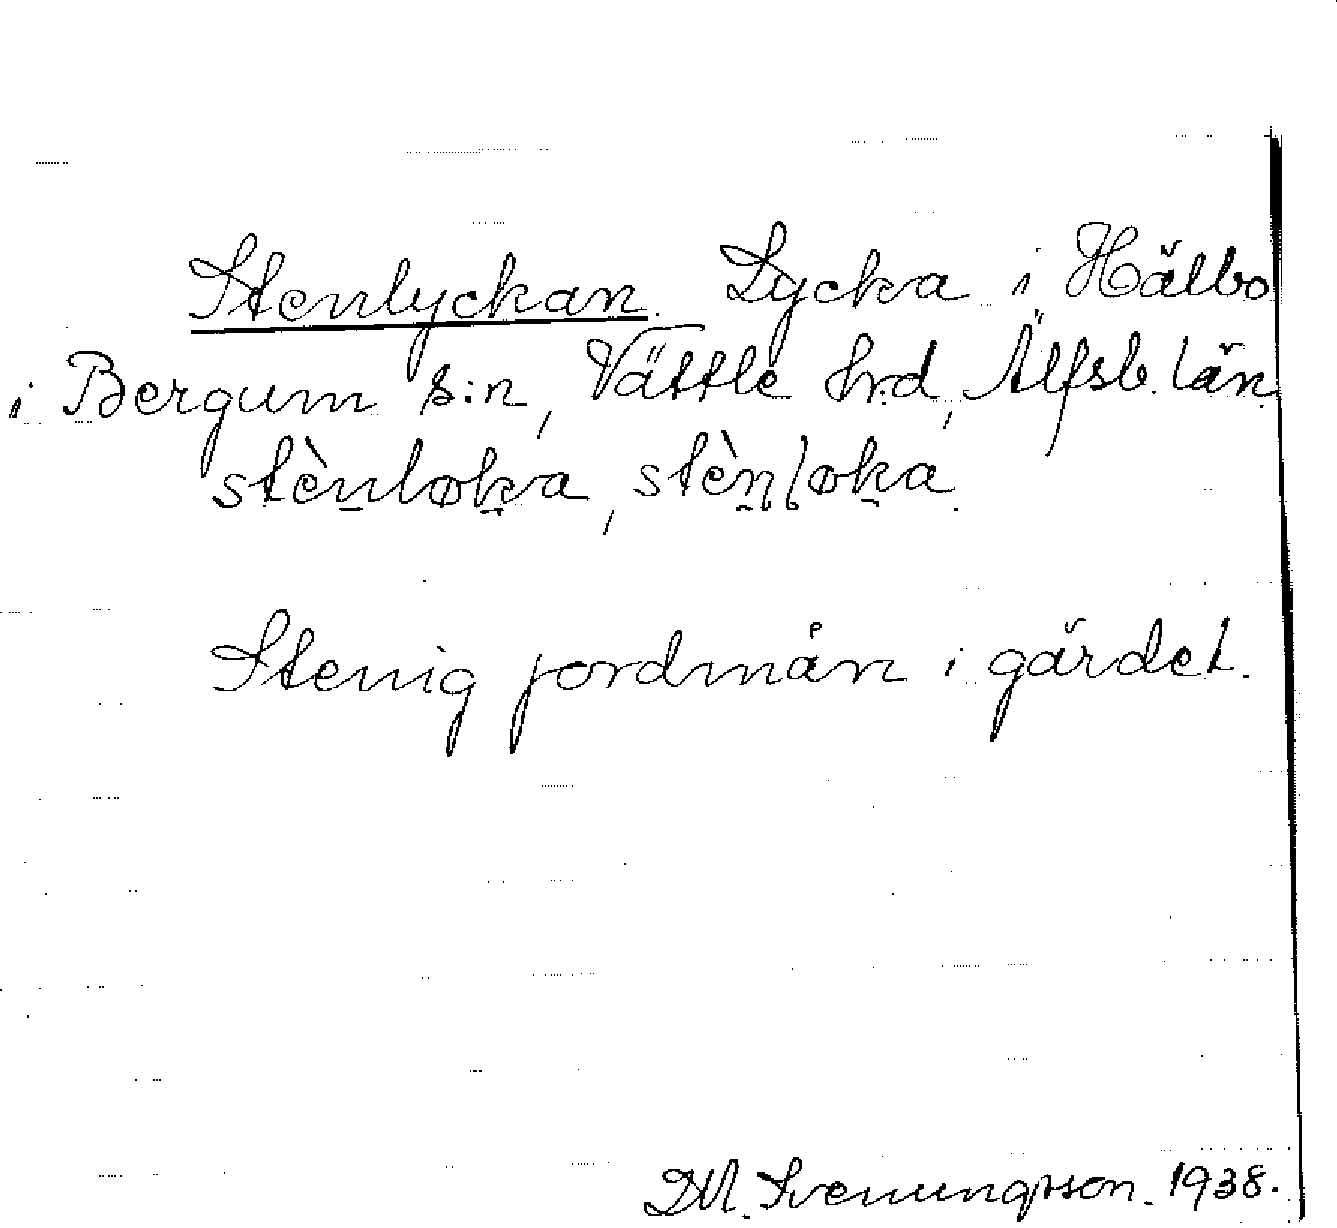 Stenlyckan. Lycka i Hälbo
i Bergum s:n, Vättle hrd, Älfsb. län.
stènløka, stènløka.
Stenig jordmån i gärdet.
D.M. Svenungsson. 1938.